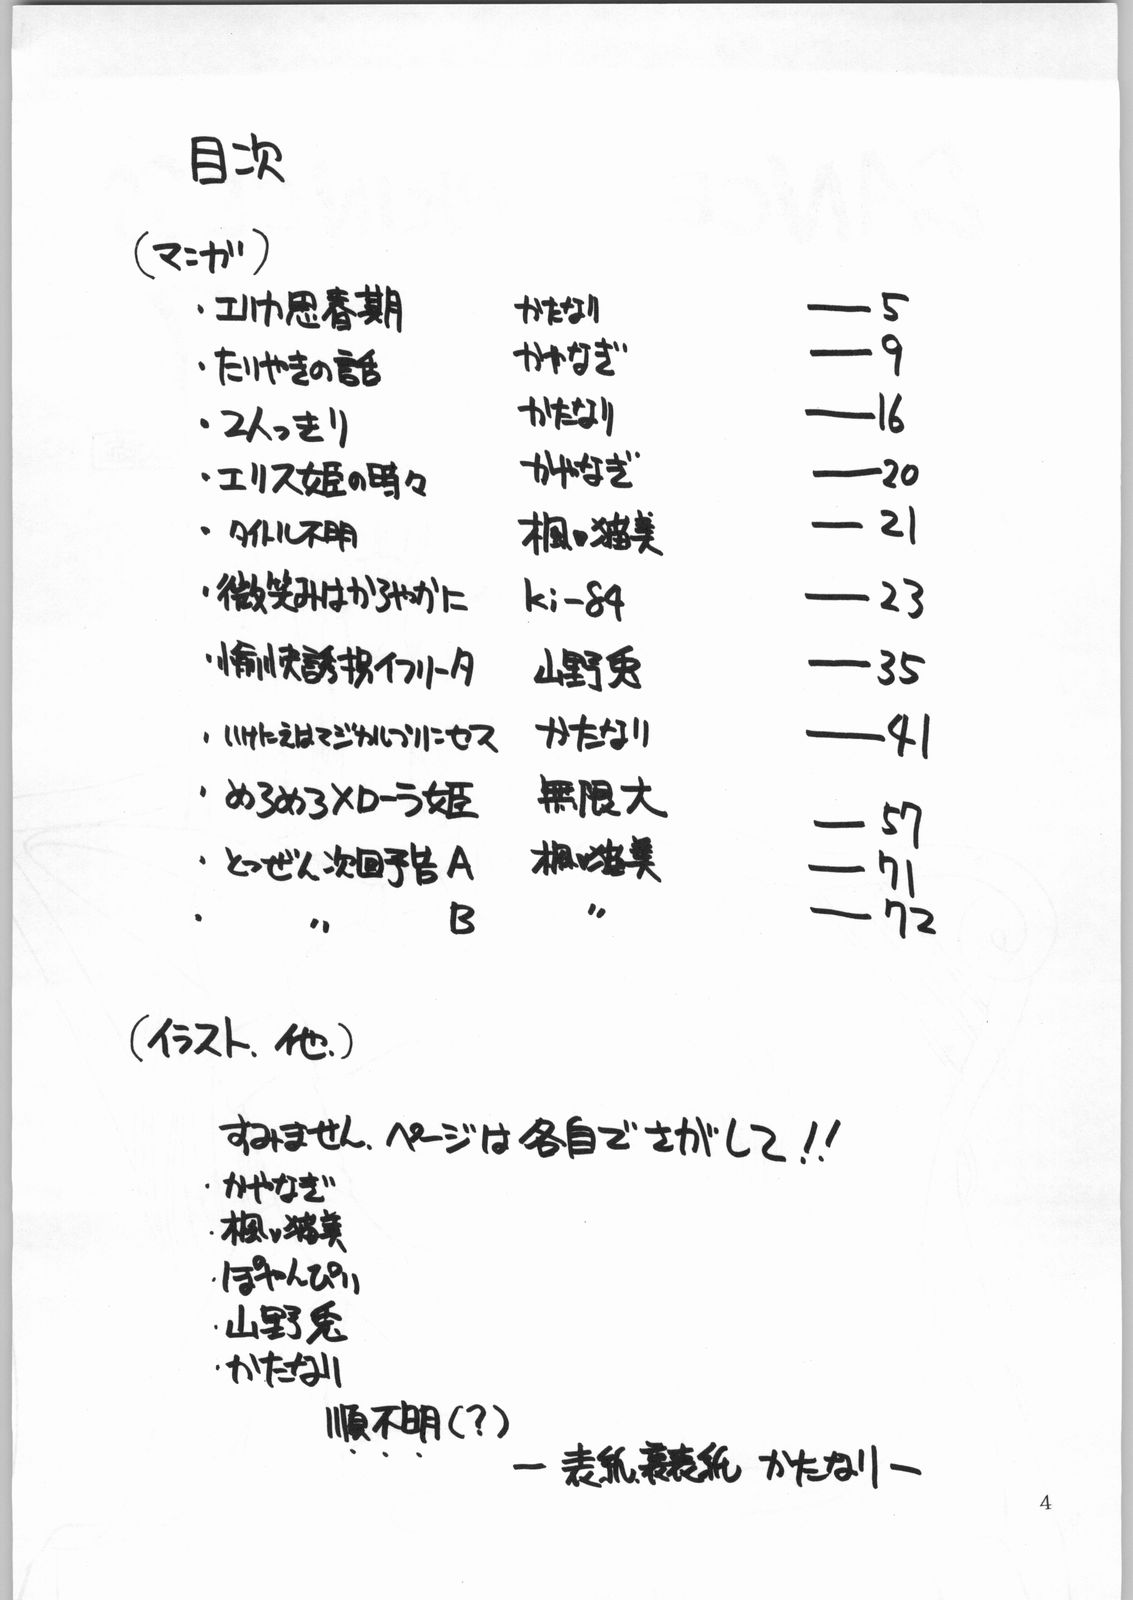 目次
(マンガ)
・エリカ思春期 かたなり ―5
・たりやきの話 かやなぎ ―9
・2人っきり かたなり ―16
・エリス姫の時々 かやなぎ ―20
・タイトル不明 楓い猫美 ―21
・微笑みはかろやかに ki-84 ―23
・愉快誘拐イフリータ 山野兎 ―35
・いけにえはマジカルプリンセス かたなり ―41
・めろめろメローラ姫 無限大 ―57
・とつぜん次回予告A 楓い猫美 ―71
・〃 B 〃 ―72
(イラスト、他、)
すみません、ページは各自でさがして!!
・かやなぎ
・楓い猫美
・ぽやんぴい
・山野兎
・かたなり
順不明(?)
―表紙、裏表紙 かたなり―
4